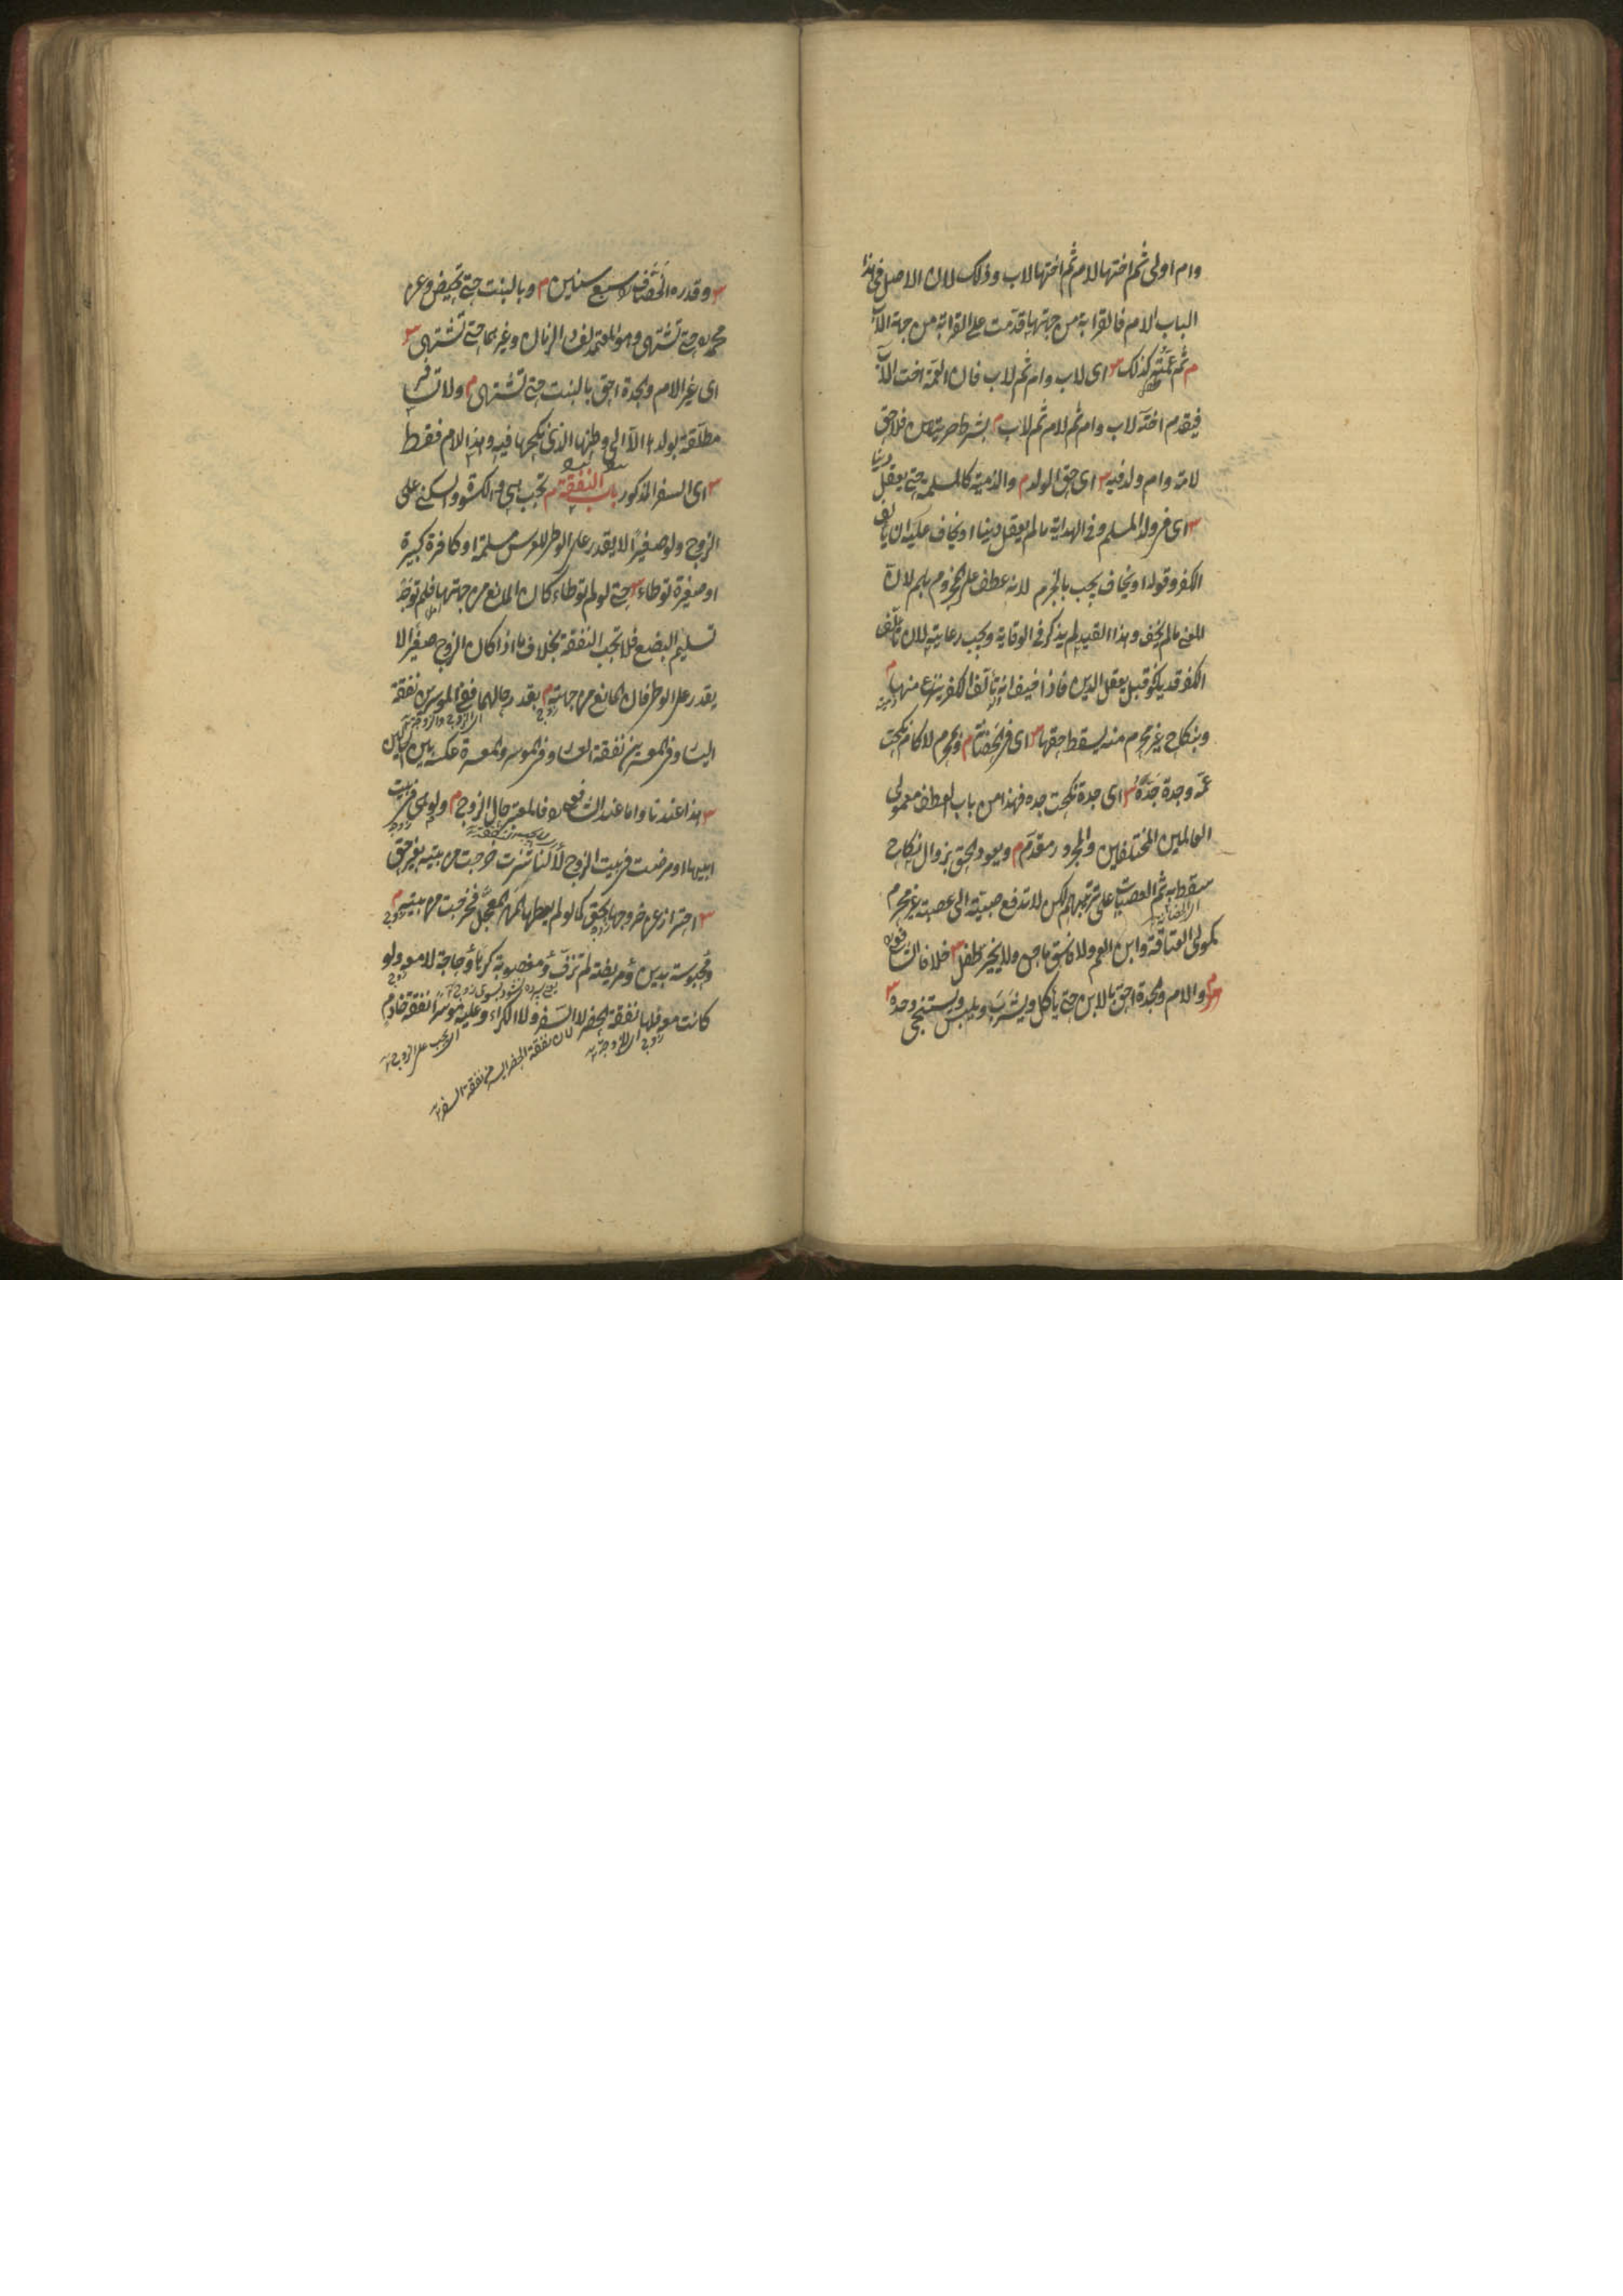 وام اولى ثم اختها لام ثم اختها لاب وذلك لان الاصل فى هذا
الباب الام فالقرابة من جهتها قدمت على القرابة من جهة الاب
م ثم عمته كذلك س اى لاب وام ثم لاب فان العمة اخت الاب
فيقدم اخته لاب وام ثم لام ثم لاب م بشرط حريتهن فلا حق
لامة وام ولد فيه س اى حق الولد م والذمية كالمسلمة حتى يعقل دينا
س اى فى ولد المسلم وفى الهداية ما لم يعقل دينا او يخاف عليه ان يألف
الكفر وقوله او يخاف يجب بالجزم لانه عطف على المجزوم بلم لان
المعنى ما لم يخف وهذا القيد لم يذكر فى الوقاية ويجب رعايته لان تألف
الكفر قد يكون قبل يعقل الدين فاذا خيف انه يألف الكفر ينزع منها م
وبنكاح غير محرم منه يسقط حقها س اى فى الحضانة م وبمحرم لا كام نكحت
عمه وجدة جده س اى جدة نكحت جده فهذا من باب العطف معمولى
العاملين المختلفين والمجرور مقدم م ويعود الحق بزوال نكاح
سقط به ثم العصبات على ترتيبهم لكن لا تدفع صبية الى عصبة غير محرم
كمولى العتاقة وابن العم ولا فاسق ماجن ولا يخير طفل س خلافا للشافعى
م والام والجدة احق بالابن حتى يأكل ويشرب ويلبس ويستنجى وحده س
س وقدره الخصاف بسبع سنين م وبالبنت حتى تحيض وعن
محمد حتى تشتهى وهو المعتمد لفساد الزمان وغيرهما حتى تشتهى س
اى غير الام والجدة احق بالبنت حتى تشتهى م ولا تسافر
مطلقة بولدها الا الى وطنها الذى نكحها فيه وهذا للام فقط
س اى السفر المذكور باب النفقة م تجب هى والكسوة والسكنى على
الزوج ولو صغيرا لا يقدر على الوطى للعرس مسلمة او كافرة كبيرة
او صغيرة توطاء س حتى لو لم توطاء كان المانع من جهتها فلم توجد
تسليم البضع فلا تجب النفقة بخلاف ما اذا كان الزوج صغيرا لا
يقدر على الوطى فان المانع من جهته م بقدر حالهما ففى الموسرين نفقة
اليسار وفى المعسرين نفقة العسار وفى الموسر والمعسرة وعكسه بين الحالين
س هذا عندنا واما عند الشافعى فالمعتبر حال الزوج م ولو هى فى بيت
ابيها او مرضت فى بيت الزوج لا لناشزة خرجت من بيته بغير حق
س احتراز عن خروجها بحق كما لو لم يعطها المهر المعجل فخرجت من بيته م
ومحبوسة بدين ومريضة لم تزف ومغصوبة كرها وحاجة لا معه ولو
كانت معه فلها نفقة الحضر لا السفر ولا الكراء وعليه موسرا نفقة خادم
لان نفقة الحضر ايسر من نفقة السفر